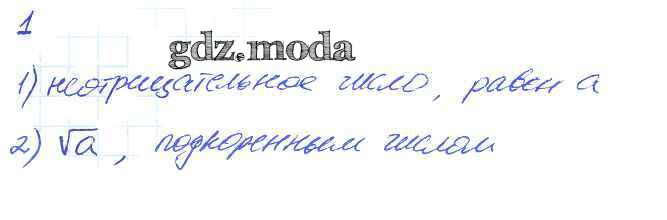 1
gdz.moda
1) неотрицательное число, равен а
2) √a, подкоренным числом